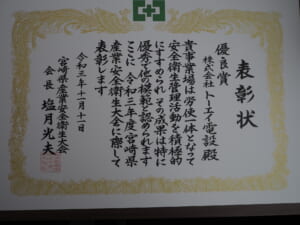 表彰状
優良賞
株式会社トーエイ電設 殿
貴事業場は労使一体となって
安全衛生管理活動を積極的
にすすめられ その成果は特に
優秀で他の模範と認められます
ここに 令和三年度宮崎県
産業安全衛生大会に際して
表彰します
令和三年十一月十一日
宮崎県産業安全衛生大会
会長 塩月光夫